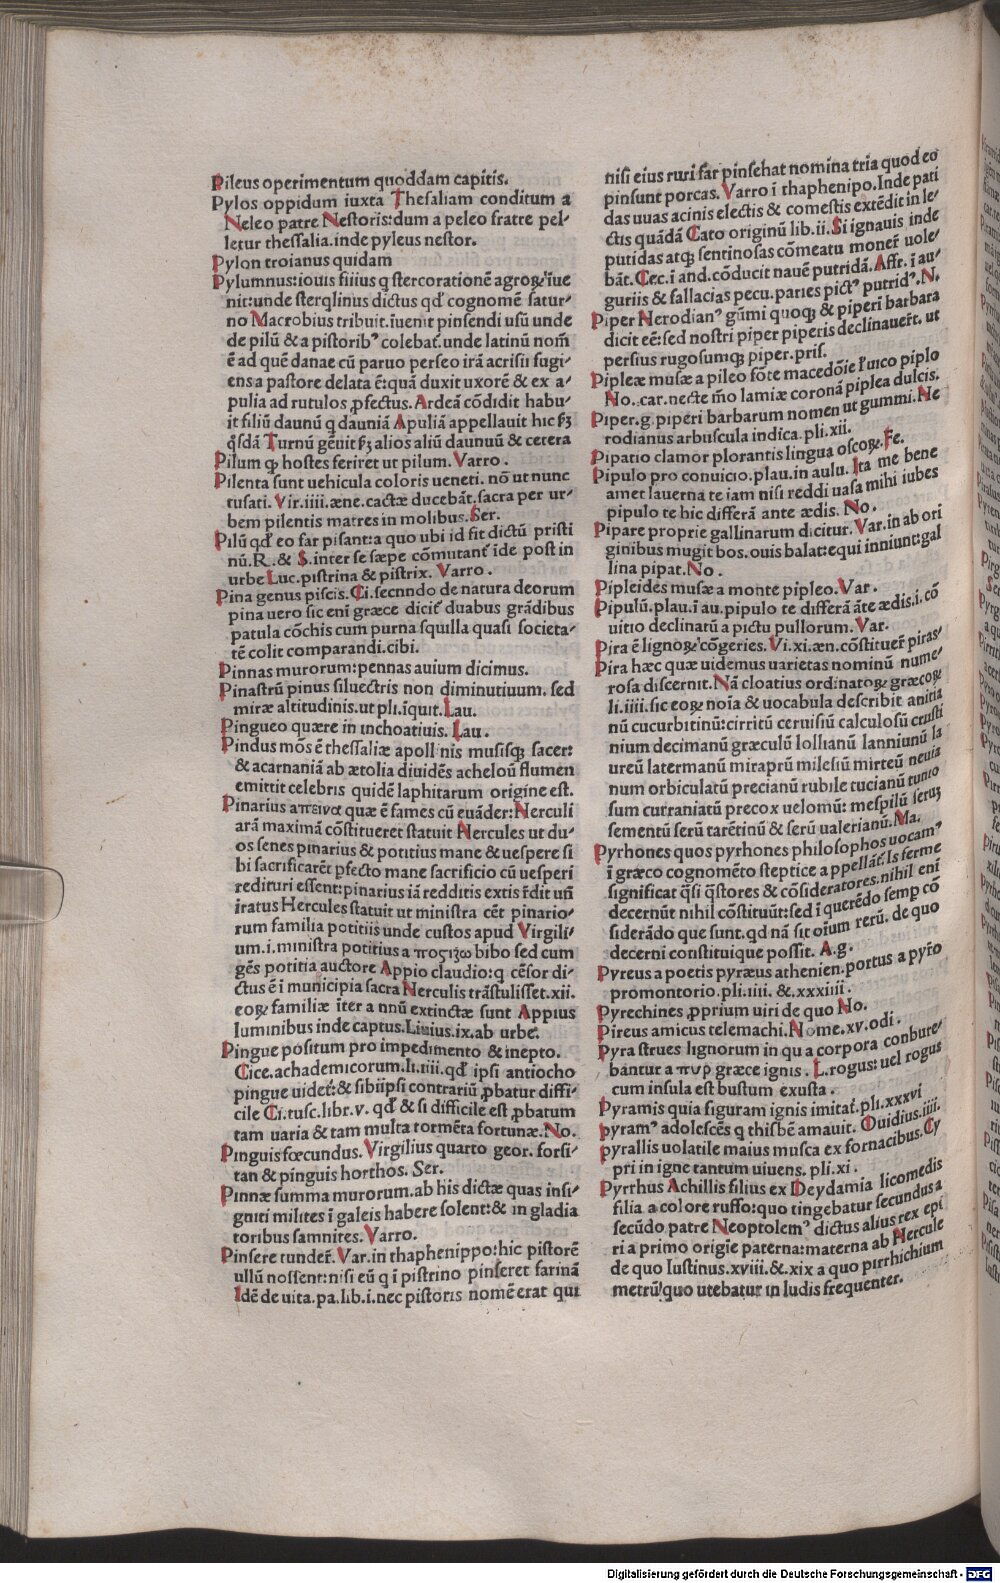 Pileus operimentum quoddam capitis.
Pylos oppidum iuxta Thesaliam conditum a
Neleo patre Nestoris: dum a peleo fratre pel⸗
letur thessalia. inde pyleus nestor.
Pylon troianus quidam
Pylumnus: iouis filius q stercorationē agroꝝ īue
nit: unde sterqlinus dictus qđ cognomē satur⸗
no Macrobius tribuit. īuenit pinsendi usū unde
de pilū & a pistoribꝰ colebat̄. unde latinū nom̄
ē ad quē danae cū paruo perseo irā acrisii fugi⸗
ens a pastore delata ē: quā duxit uxorē & ex a⸗
pulia ad rutulos ꝓfectus. Ardeā cōdidit habu⸗
it filiū daunū q dauniā Apuliā appellauit hic
Turnū gēuit alios aliū daunuū & cetera
Pilum qꝫ hostes feriret ut pilum. Varro.
Pilenta sunt uehicula coloris ueneti. nō ut nunc
rusati. Vir. iiii. æne. cactæ ducebāt. sacra per ur⸗
bem pilentis matres in molibus. Ser.
Pilū qđ eo far pisant: a quo ubi id fit dictū pristi
nū. R. & S. inter se sæpe cōmutant̄ ide post in
urbe Luc. pistrina & pistrix. Varro.
Pina genus piscis. Ci. secnndo de natura deorum
pina uero sic eni græce dicit̄ duabus grādibus
patula cōchis cum purna squilla quasi societa⸗
tē colit comparandi. cibi.
Pinnas murorum: pennas auium dicimus.
Pinastrū pinus siluectris non diminutiuum. sed
miræ altitudinis. ut pli. īquit. Lau.
Pingueo quære in inchoatiuis. Lau.
Pindus mōs ē thessaliæ apoll nis musisqꝫ sacer:
& acarnaniā ab ætolia diuidēs acheloū flumen
emittit celebris quidē laphitarum origine est.
Pinarius απεινα quæ ē fames cū euāder: Nerculi
arā maximā cōstitueret statuit Nercules ut du⸗
os senes pinarius & potitius mane & uespere si
bi sacrificarēt pfecto mane sacrificio cū uesperi
redituri essent: pinarius iā redditis extis
īratus Hercules statuit ut ministra cēt pinario⸗
rum familia potitiis unde custos apud Virgili⸗
um. i. ministra potitius a ποτιζω bibo sed cum
gēs potitia auctore Appio claudio: q cēsor di⸗
ctus ē ī municipia sacra Nerculis trāstulisset. xii.
eoꝝ familiæ īter a nnū extinctæ sunt Appius
luminibus inde captus. Liuius. ix. ab urbe.
Pingue positum pro impedimento & inepto.
Cice. achademicorum. li. iiii. qđ ipsi antiocho
pingue uidet̄: & sibiipsi contrariū ꝓbatur diffi⸗
cile Ci. tusc. libr. v. qđ & si difficile est ꝓbatum
tam uaria & tam multa tormēta fortunæ. No.
Pinguis fœcundus. Virgilius quarto geor. forsi⸗
tan & pinguis horthos. Ser.
Pinnæ summa murorum. ab his dictæ quas insi⸗
gniti milites ī galeis habere solent: & in gladia
toribus samnites. Varro.
Pinsere tunder̄. Var. in thaphenippo: hic pistorē
ullū nossent: nisi eū q ī pistrino pinseret farinā
Idē de uita. pa. lib. i. nec pistoris nomē erat qui
nisi eius ruri far pinsebat nomina tria quod eo
pinsunt porcas. Varro ī thaphenipo. Inde pati
das uuas acinis electis & comestis extēdit in le⸗
ctis quādā Cato originū lib. ii. Si ignauis inde
putidas atqꝫ sentinosas cōmeatu moner̄ uole⸗
bāt. Cec. ī and. cōducit nauē putridā. Affr. ī au⸗
guriis & fallacias pecu. paries pictꝰ putridꝰ. N.
Piper Nerodianꝰ gūmi quoqꝫ & piperi barbara
dicit eē: sed nostri piper piperis declinauer̄t. ut
persius rugosumqꝫ piper. pris.
Pipleæ musæ a pileo fōte macedōie unco piplo
No. car. necte m̄o lamiæ coronā piplea dulcis.
Piper. g. piperi barbarum nomen ut gummi. Ne
rodianus arbuscula indica. pli. xii.
Pipatio clamor plorantis lingua oscoꝝ. Fe.
Pipulo pro conuicio. plau. in aulu. Ita me bene
amet lauerna te iam nisi reddi uasa mihi iubes
pipulo te hic differā ante ædis. No.
Pipare proprie gallinarum dicitur. Var. in ab ori
ginibus mugit bos. ouis balat: equi inniunt: gal
lina pipat. No.
Pipleidēs musæ a monte pipleo. Var.
Pipulū. plau. ī au. pipulo te differā āte ædis. i. cō
uitio declinatū a pictu pullorum. Var.
Pira ē lignoꝝ cōgeries. Vi. xi. æn. cōstituer̄ piras⸗
Pira hæc quæ uidemus uarietas nominū nume⸗
rosa discernit. Nā cloatius ordinatoꝝ græcoꝝ
li. iiii. sic eoꝝ noīa & uocabula describit anitia
nū cucurbitinū: cirritū ceruisiū calculosū crusti
nium decimanū græculū lollianū lanniunū la
ureū latermanū miraprū milesiū mirteū neuia
num orbiculatū precianū rubile tucianū tunio
sum cutraniatū precox uelomū: mespilū seruꝫ
sementū serū tarētinū & serū ualerianū. Ma.
Pyrhones quos pyrhones philosophos uocamꝰ
ī græco cognomēto steptice appellāt̄. Is ferme
significat q̄si q̄stores & cōsideratores. nihil enī
decernūt nihil cōstituūt: sed ī querēdo semp cō
siderādo que sunt. qd nā sit oīum rerū. de quo
decerni constituique possit. A. g.
Pyreus a poetis pyræus athenien. portus a pyr̄o
promontorio. pli. iiii. &. xxxiiii.
Pyrechines ꝓprium uiri de quo No.
Pireus amicus telemachi. Nome. xv. odi.
Pyra strues lignorum in qu a corpora conbure⸗
bāntur a πυρ græce ignis. L. rogus: uel rogus
cum insula est bustum exusta.
Pyramis quia figuram ignis imitat̄. pli. xxxvi
pyramꝰ adolescēs q thisbē amauit. Ouidius. iiii.
pyrallis uolatile maius musca ex fornacibus. Cy
pri in igne tantum uiuens. pli. xi.
Pyrrhus Achillis filius ex Deydamia licomedis
filia a colore ruffo: quo tingebatur secundus a
secūdo patre Neoptolemꝰ dictus alius rex epi
ri a primo origīe paterna: materna ab Nercule
de quo Iustinus. xviii. &. xix a quo pirrhichium
metrū quo utebatur in ludis frequenter.
Digitalisierung gefördert durch die Deutsche Forschungsgemeinschaft - DFG